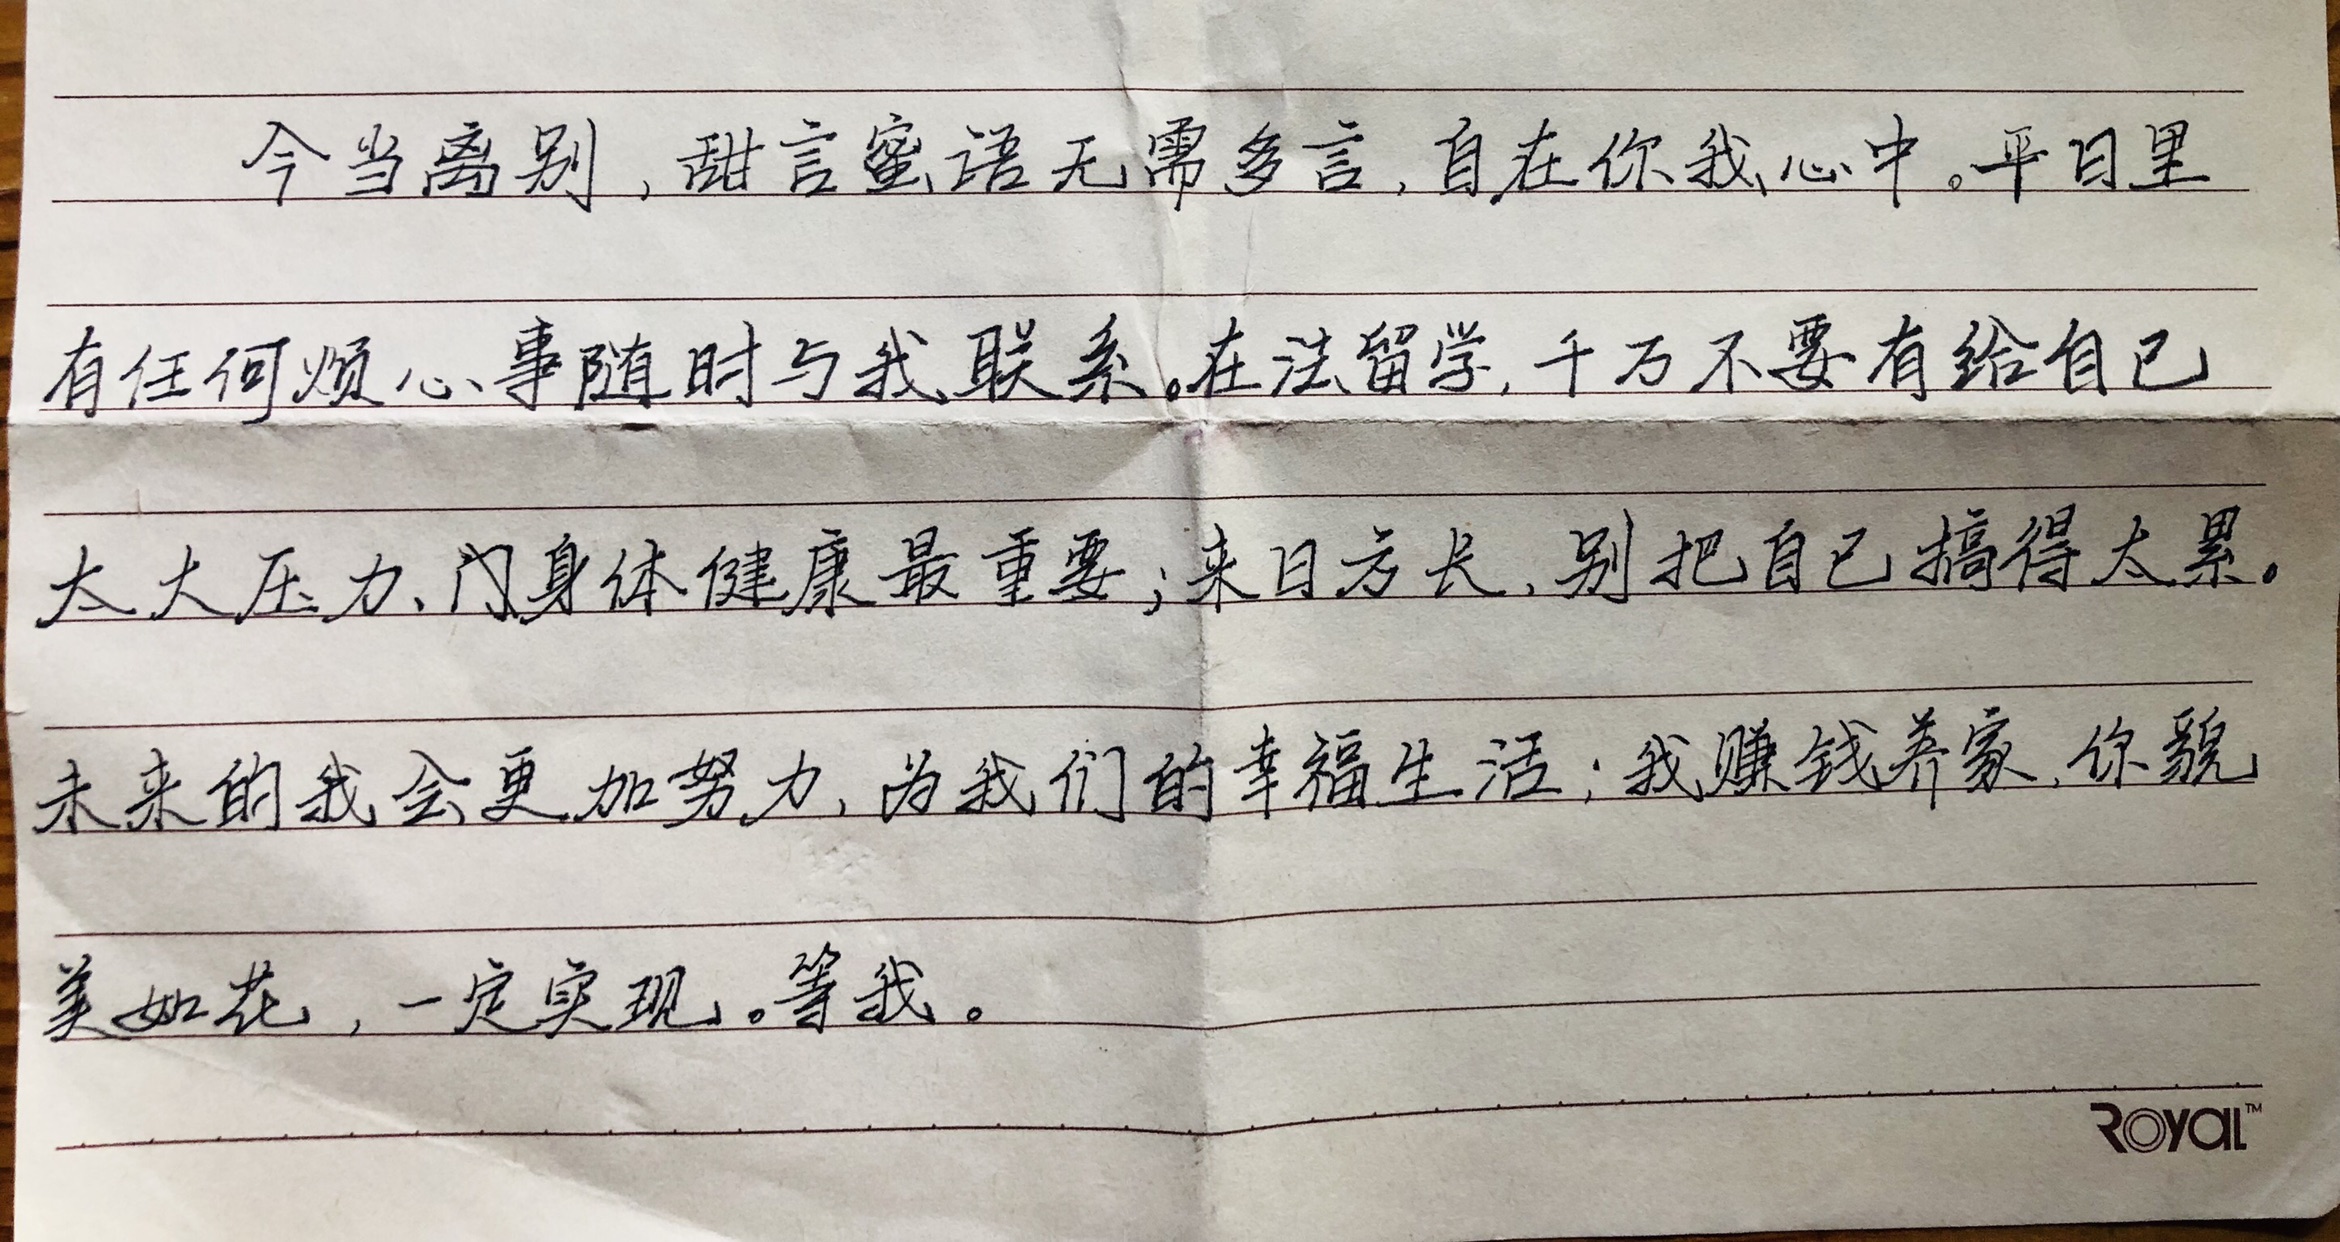 今当离别，甜言蜜语无需多言，自在你我心中。平日里
有任何烦心事随时与我联系。在法留学，千万不要有给自己
太大压力、身体健康最重要；来日方长，别把自己搞得太累。
未来的我会更加努力，为我们的幸福生活；我赚钱养家，你貌
美如花，一定实现。等我。
ROyal™